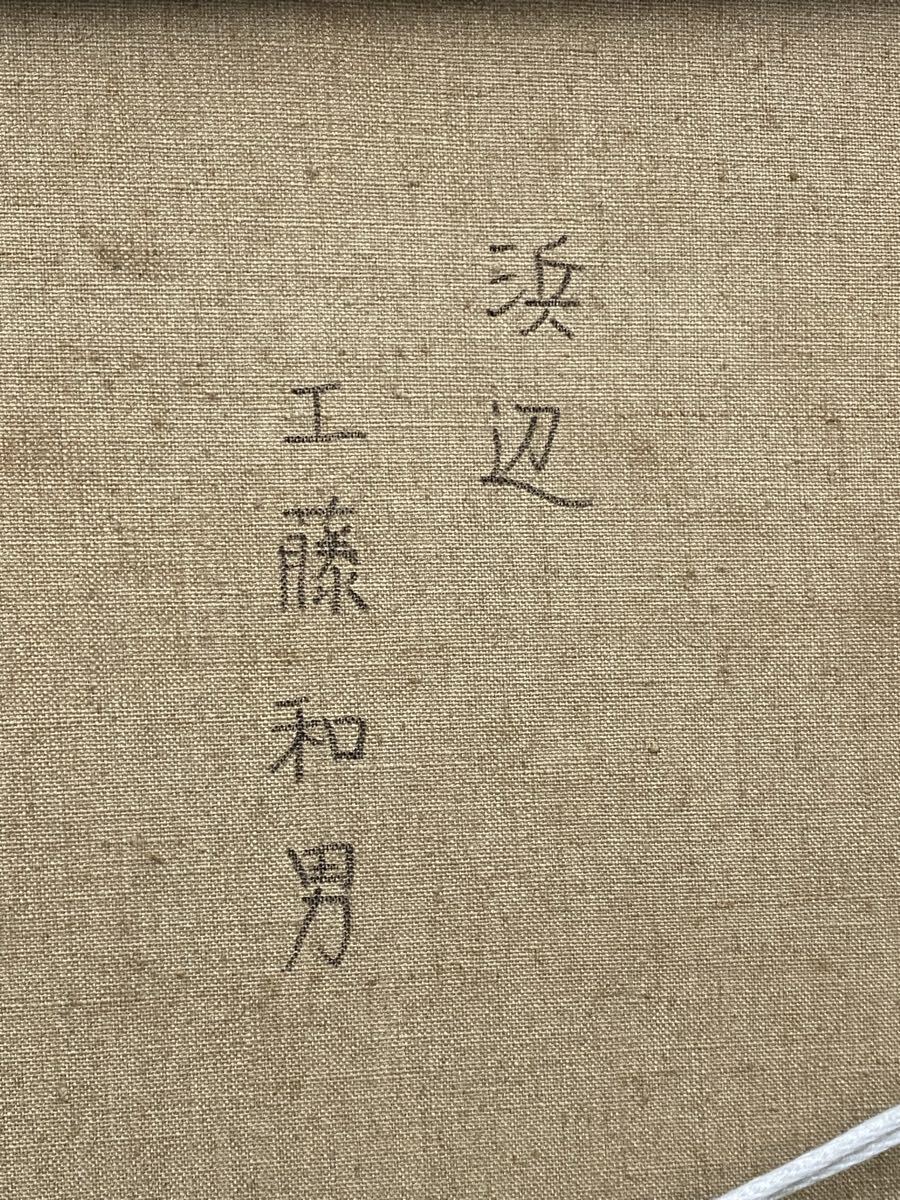 浜辺
工藤和男